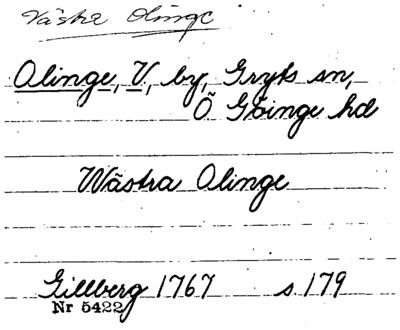 Västra Olinge
Olinge, V, by, Gryts sn,
Ö Göinge hd
Wästra Olinge
Gillberg 1767 s 179
Nr 5422